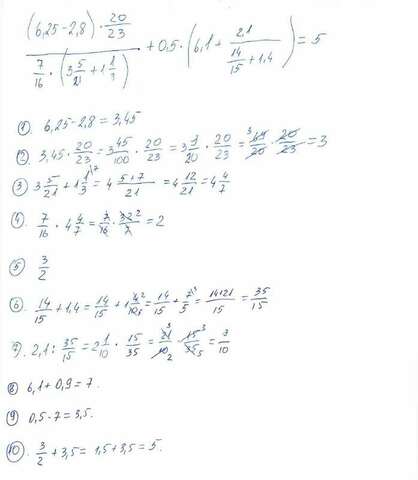 ((6,25-2,8)·20/23)/(7/16·(3 5/21+1 1/3)) + 0,5·(6,1+2,1/(14/15+1,4)) = 5
1. 6,25-2,8=3,45
2. 3,45·20/23=3 45/100·20/23=3 9/20·20/23=69/20·20/23=3
3 3 5/21+1 1/3=4 (5+7)/21=4 12/21=4 4/7
4. 7/16·4 4/7=7/16·32/7=2
5 3/2
6. 14/15+1,4=14/15+1 4/10=14/15+7/5=(14+21)/15=35/15
7. 2,1:35/15=2 1/10·15/35=21/10·15/35=9/10
8 6,1+0,9=7.
9 0,5·7=3,5.
10. 3/2+3,5=1,5+3,5=5.